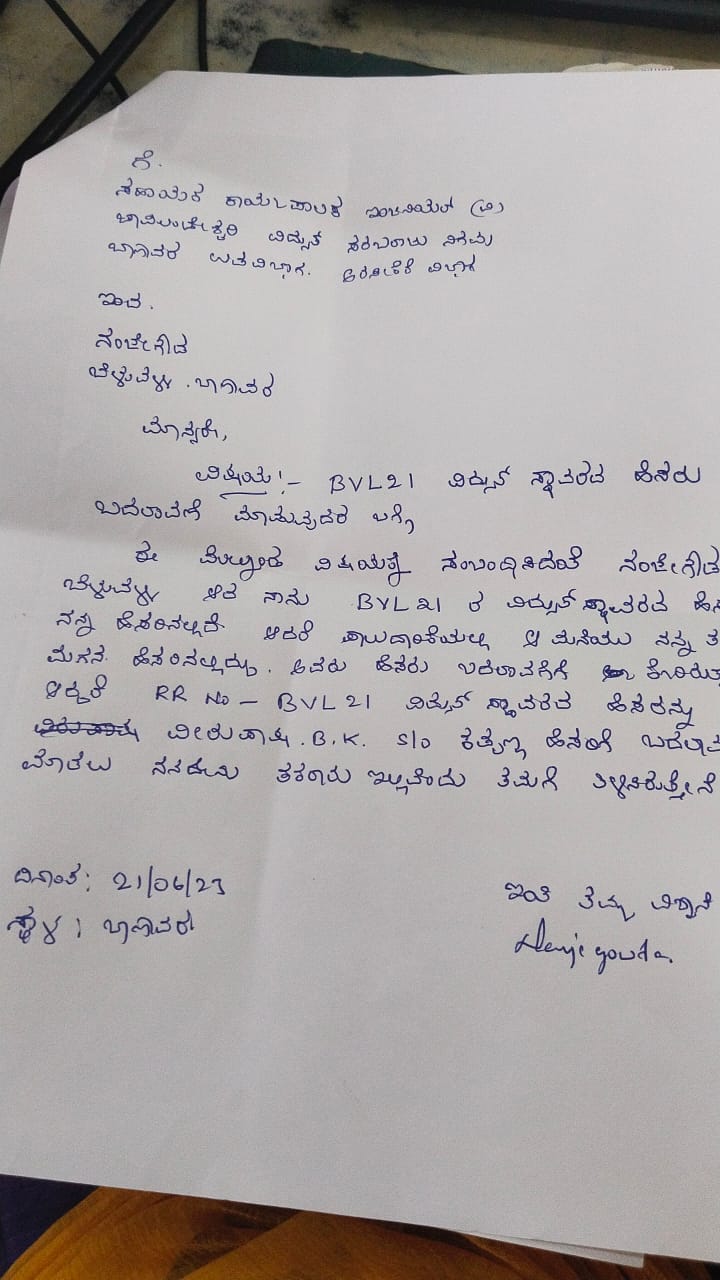 ಗೆ.
ಸಹಾಯಕ ಕಾರ್ಯಪಾಲಕ ಇಂಜಿನಿಯರ್ (ವಿ)
ಚಾಮುಂಡೇಶ್ವರಿ ವಿದ್ಯುತ್ ಸರಬರಾಜು ನಿಗಮ
ಬಾಣಾವರ ಉಪವಿಭಾಗ. ಅರಸೀಕೆರೆ ವಿಭಾಗ
ಇಂದ.
ನಂಜೇಗೌಡ
ಬಾಣಾವರ
ಮಾನ್ಯರೇ,
ವಿಷಯ:- BVL21 ವಿದ್ಯುತ್ ಸ್ಥಾವರದ ಹೆಸರು
ಬದಲಾವಣೆ ಮಾಡುವುದರ ಬಗ್ಗೆ
ಈ ಮೇಲ್ಕಂಡ ವಿಷಯಕ್ಕೆ ಸಂಬಂಧಿಸಿದಂತೆ ನಂಜೇಗೌಡ
ಆದ ನಾನು BVL21 ರ ವಿದ್ಯುತ್ ಸ್ಥಾವರದ
ನನ್ನ ಹೆಸರಿನಲ್ಲಿದೆ ಆದರೆ ಪಾಲುದಾರಿಕೆಯಲ್ಲಿ ಆ ಮನೆಯು ನನ್ನ
ಮಗನ ಹೆಸರಿನಲ್ಲಿದ್ದು. ಅವರು ಹೆಸರು ಬದಲಾವಣೆಗೆ
ಆದ್ದರಿಂದ RR No - BVL21 ವಿದ್ಯುತ್ ಸ್ಥಾವರದ ಹೆಸರನ್ನು
ವೀರುಪಾಕ್ಷ. B.K. S/o ಹೆಸರಿಗೆ
ಮಾಡಲು ನನ್ನದೇನು ತಕರಾರು ಇಲ್ಲವೆಂದು ತಮಗೆ ತಿಳಿಸಿರುತ್ತೇನೆ
ದಿನಾಂಕ: 21/06/23
ಸ್ಥಳ: ಬಾಣಾವರ
ಇಂತಿ ತಮ್ಮ ವಿಶ್ವಾಸಿ
Nanjegouda.